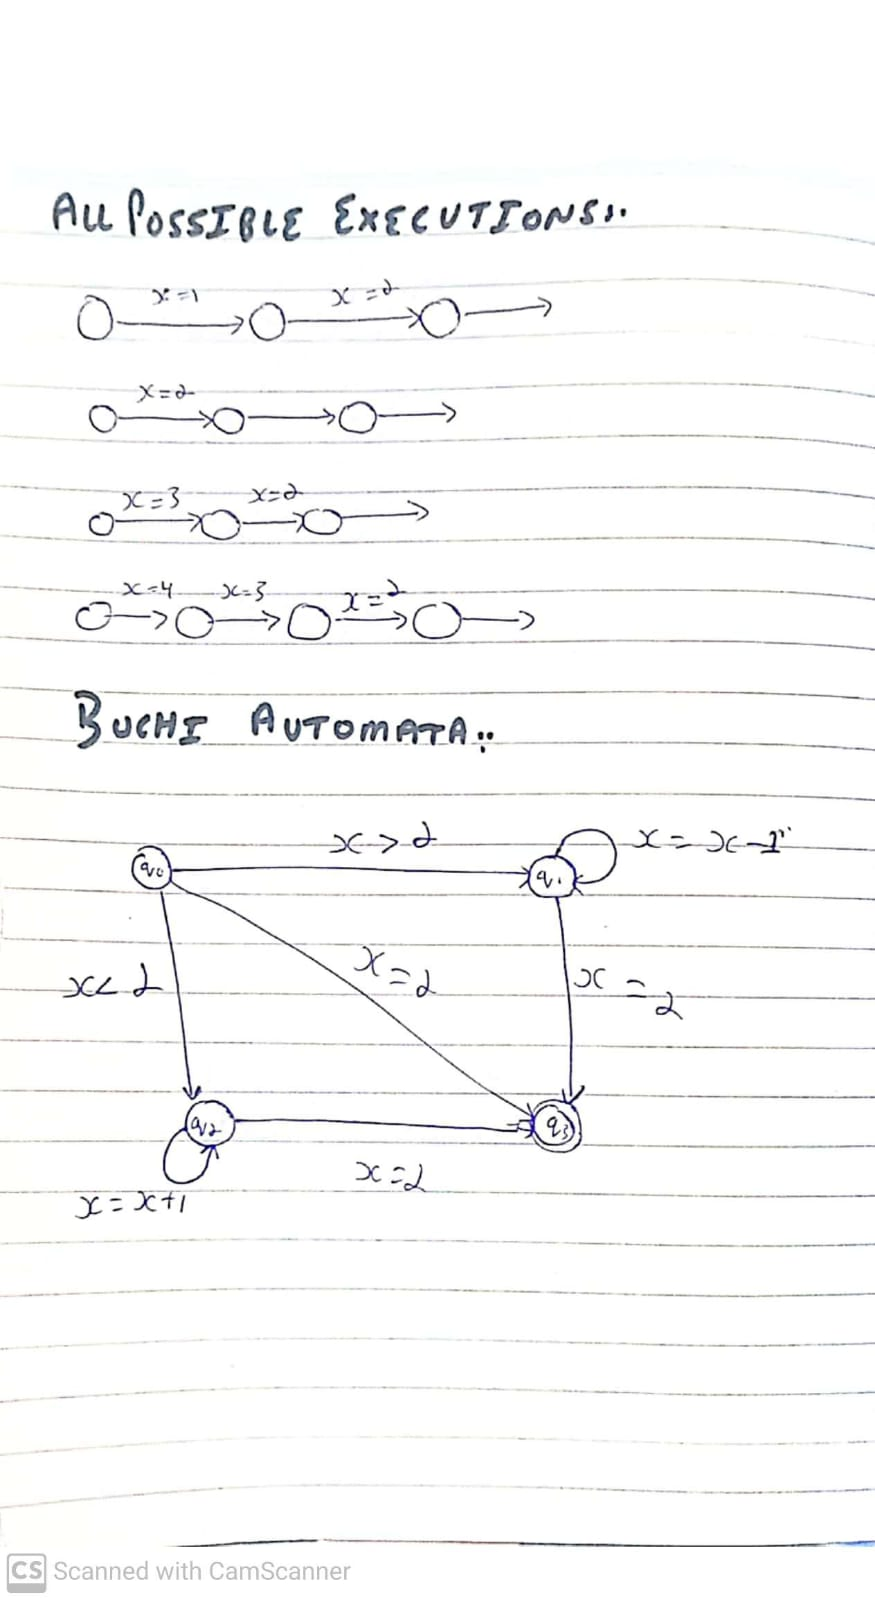 All POSSIBLE EXECUTIONS:.
x=1 x=2
x=2
x=3 x=2
x=4 x=3 x=2
BUCHI AUTOMATA:.
x>2 x=x-1
q0 q1
x<2 x=2 x=2
q2 q3
x=2
x=x+1
CS Scanned with CamScanner